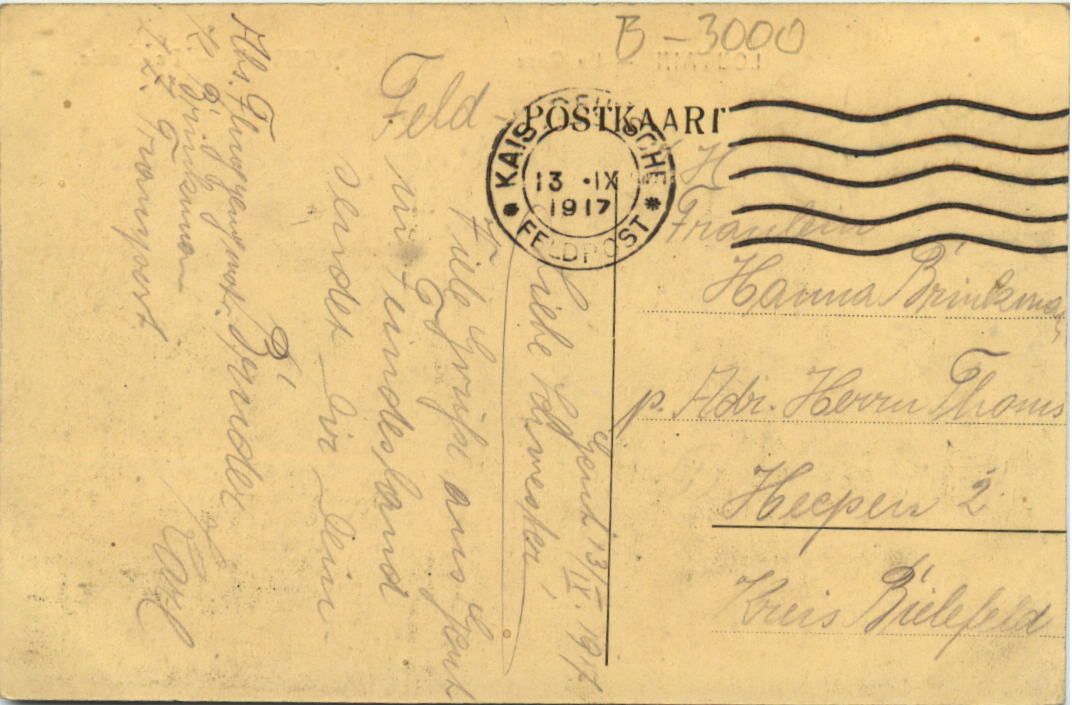 B-3000
POSTKAART
Feld-
KAIS. DEUTSCHE
13 .IX
1917
FELDPOST
Fräulein
Hanna Brinkman
p. Adr. Herrn Thoms
Heepen 2
Kreis Bielefeld
Gent, 13/IX. 1917
Liebe Schwester!
Viele Grüße aus Gent
in Feindesland
sendet Dir Dein
Br
Carl
Abs. Flugzeugmatr.
K. Brinkmann
z. Zt. Transport